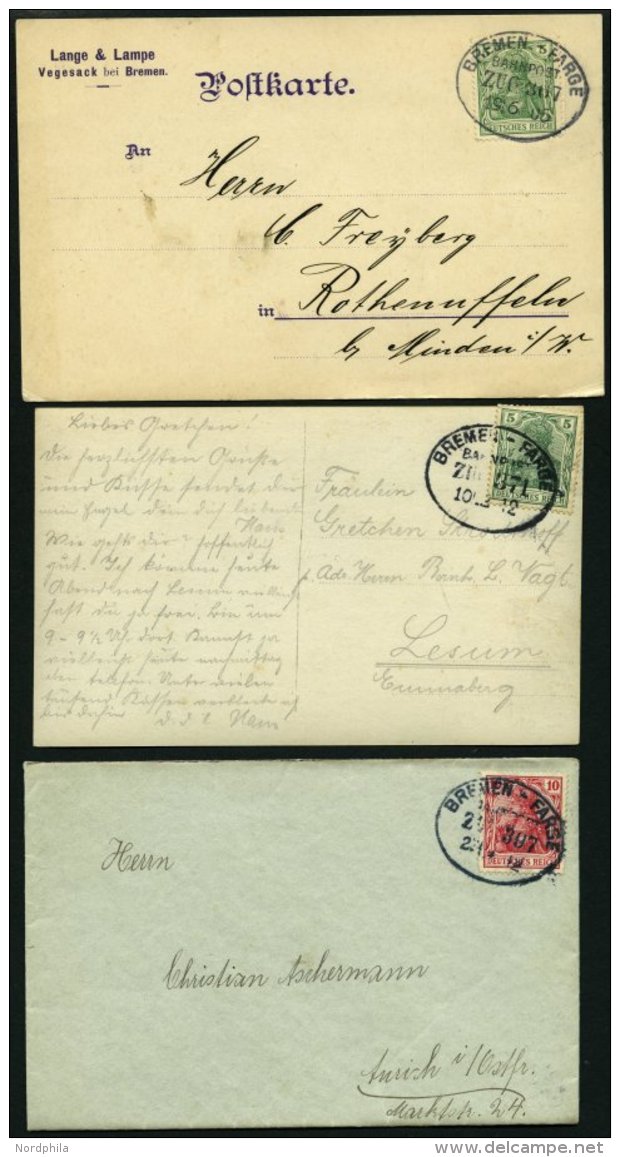 Lange & Lampe
Vegesack bei Bremen.
Postkarte.
BREMEN - FARGE
BAHNPOST
ZUG 307
19.6. 05
DEUTSCHES REICH
An
Herrn
C. Freyberg
in Rothenuffeln
b/ Minden i/W.
Liebes Gretchen!
Die herzlichsten Grüße
und Küsse sendet dir
mein Engel dein dich liebender
Hans
Wie gehts dir? hoffentlich
gut. Ich komme heute
Abend nach Lesum
hast du ja frei. Bin um
9 - 9½ Uhr dort. Kannst ja
vielleicht heute nachmittag
telefon. Unter vielen
tausend Küssen verbleibe ich
bis dahin d. d. l. Hans
BREMEN - FARGE
ZUG 371
12
5 5
DEUTSCHES REICH
Fräulein
Gretchen
Adr. Herrn Bernh. L. Vagt
Lesum
Emmaberg
BREMEN - FARGE
397
12
10
DEUTSCHES REICH
Herrn
Christian Aschermann
Aurich i/Ostfr.
Marktstr. 24.
Nordphila